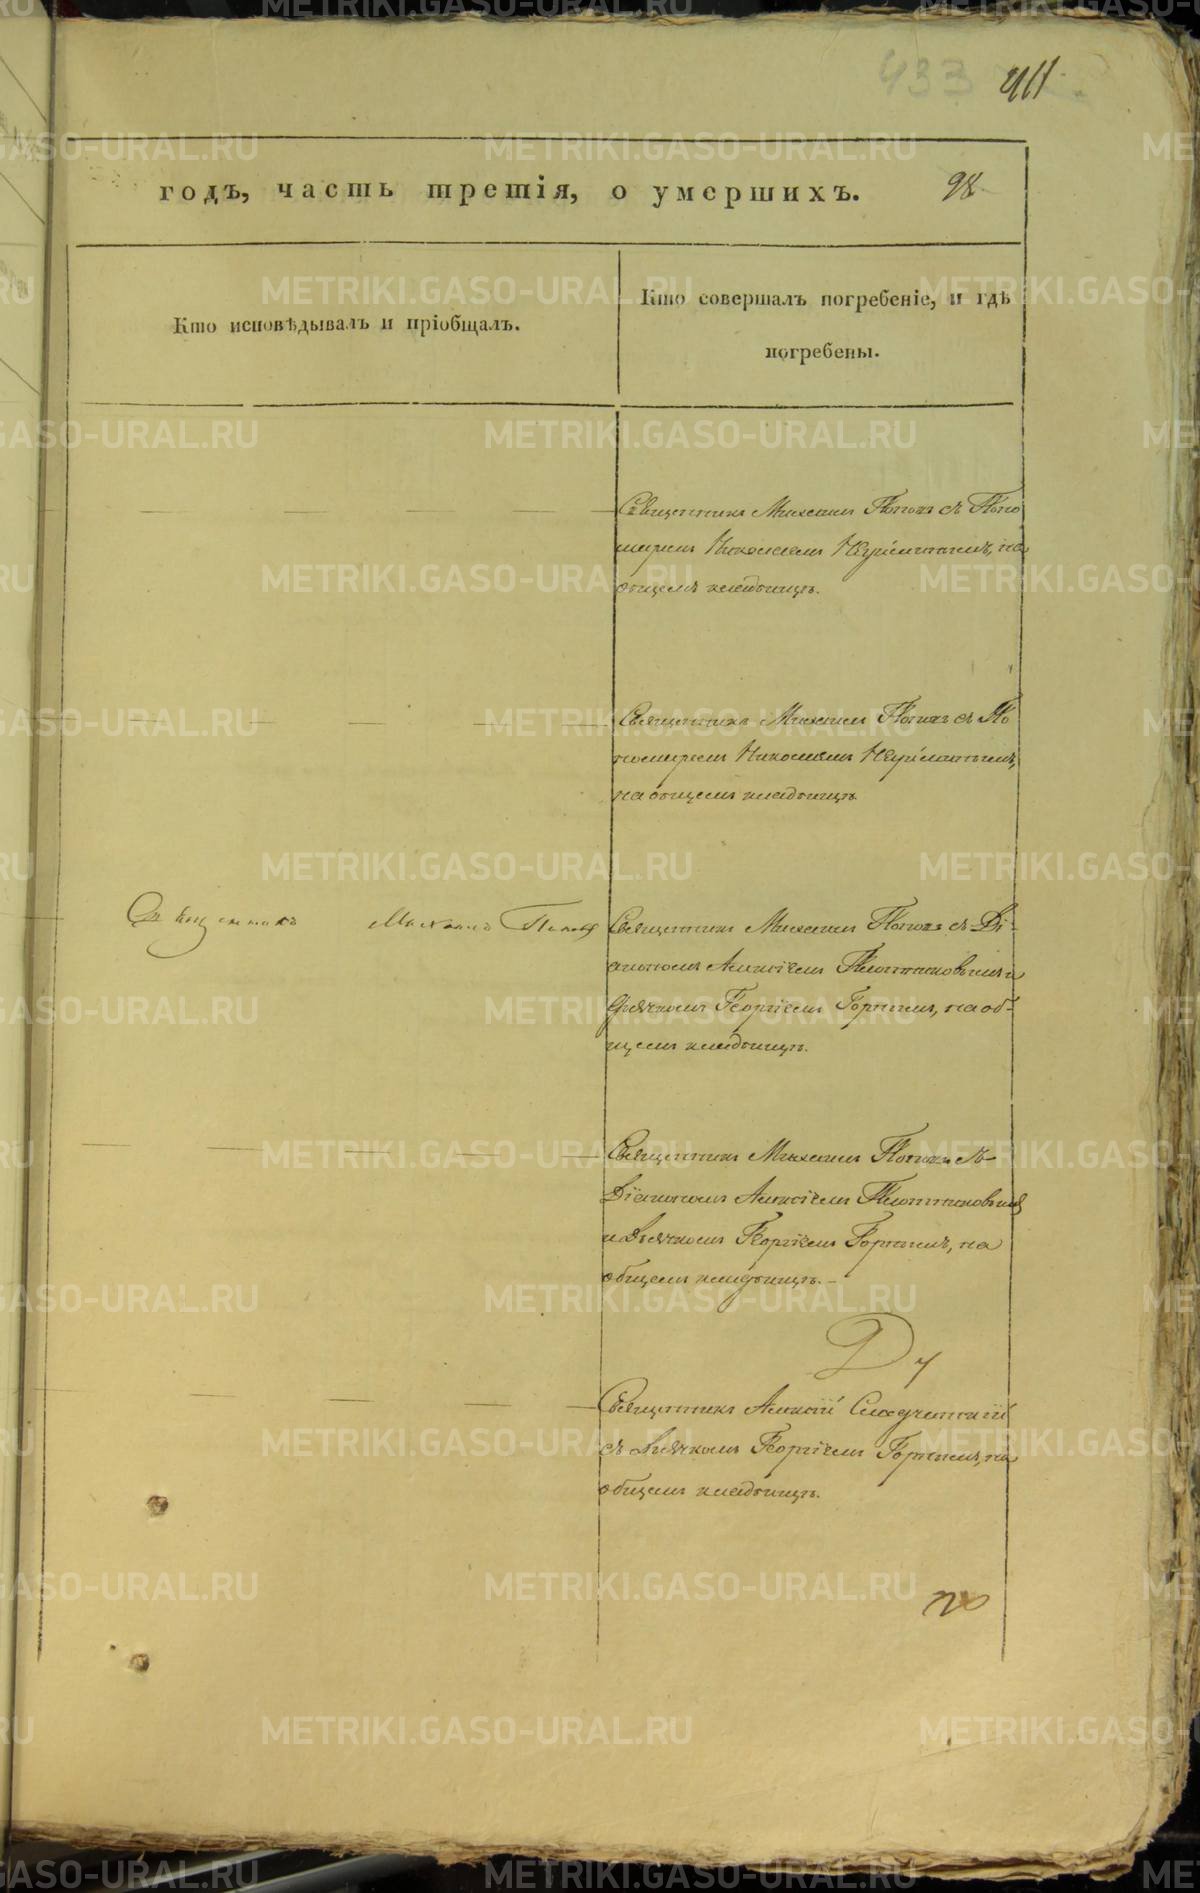 433 411
годъ, часть третія, о умершихъ. 98
Кто исповѣдывалъ и пріобщалъ.
Кто совершалъ погребеніе, и гдѣ
погребены.
Священникъ Михаилъ Поповъ съ Поно
маремъ Николаемъ на
общемъ кладбищѣ.
Священникъ Михаилъ Поповъ съ По
номаремъ Николаемъ
на общемъ кладбищѣ
Священникъ Михаилъ Поповъ
Священникъ Михаилъ Поповъ съ Ді-
акономъ Алексіемъ Плотниковымъ и
Дьячкомъ Георгіемъ Горнымъ, на об-
щемъ кладбищѣ.
Священникъ Михаилъ Поповъ съ
Діакономъ Алексіемъ Плотниковымъ
и Дьячкомъ Георгіемъ Горнымъ, на
общемъ кладбищѣ.
Священникъ Алексій
съ Дьячкомъ Георгіемъ Горнымъ, на
общемъ кладбищѣ.
METRIKI.GASO-URAL.RU